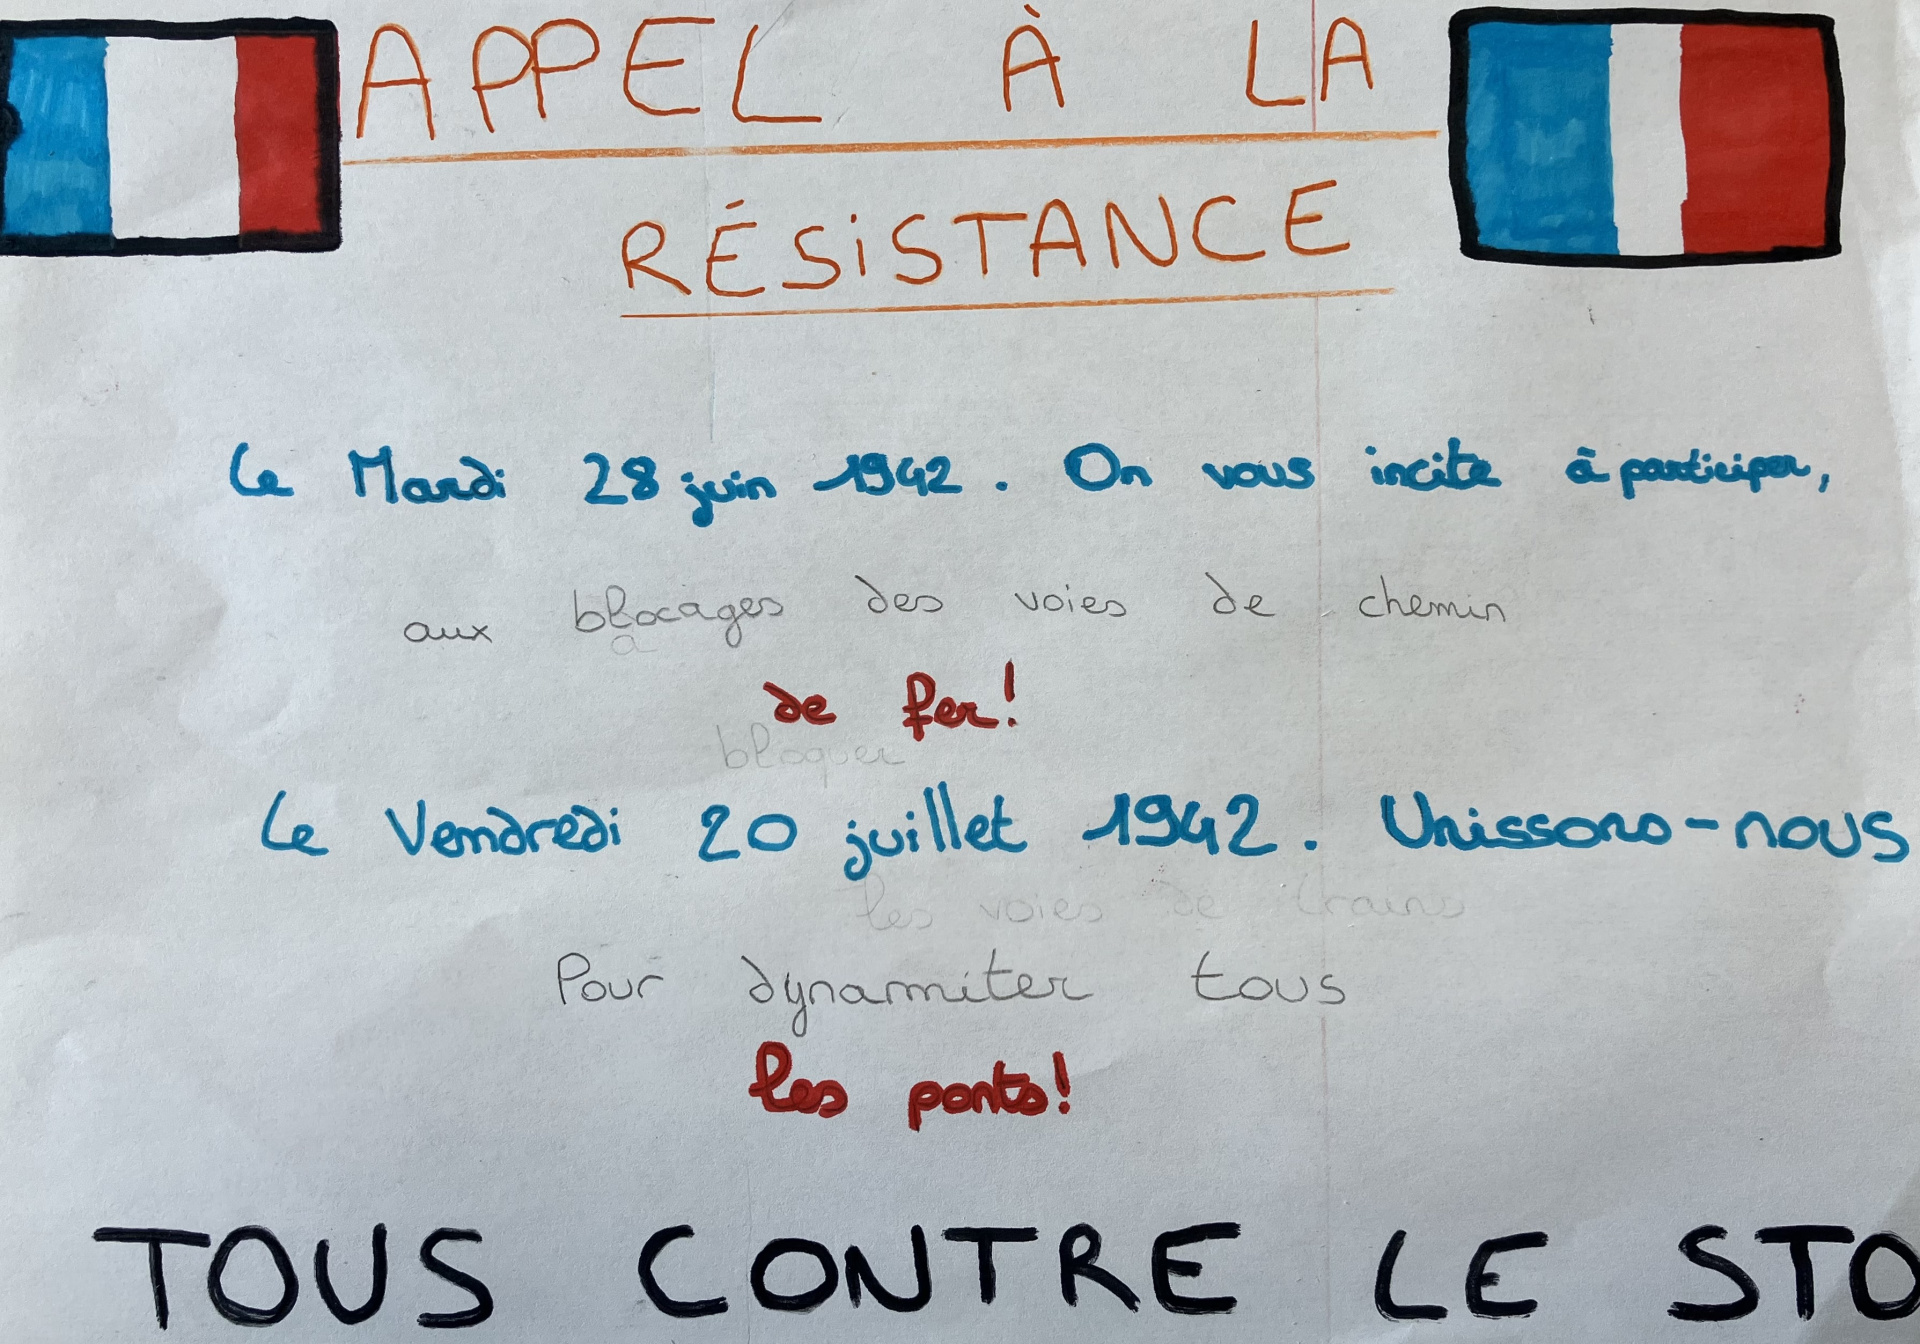 APPEL À LA
RÉSISTANCE
Le Mardi 28 juin 1942. On vous incite à participer,
aux blocages des voies de chemin
a
de fer!
bloquer
Le Vendredi 20 juillet 1942. Unissons-nous
les voies de trains
Pour dynamiter tous
les ponts!
TOUS CONTRE LE STO